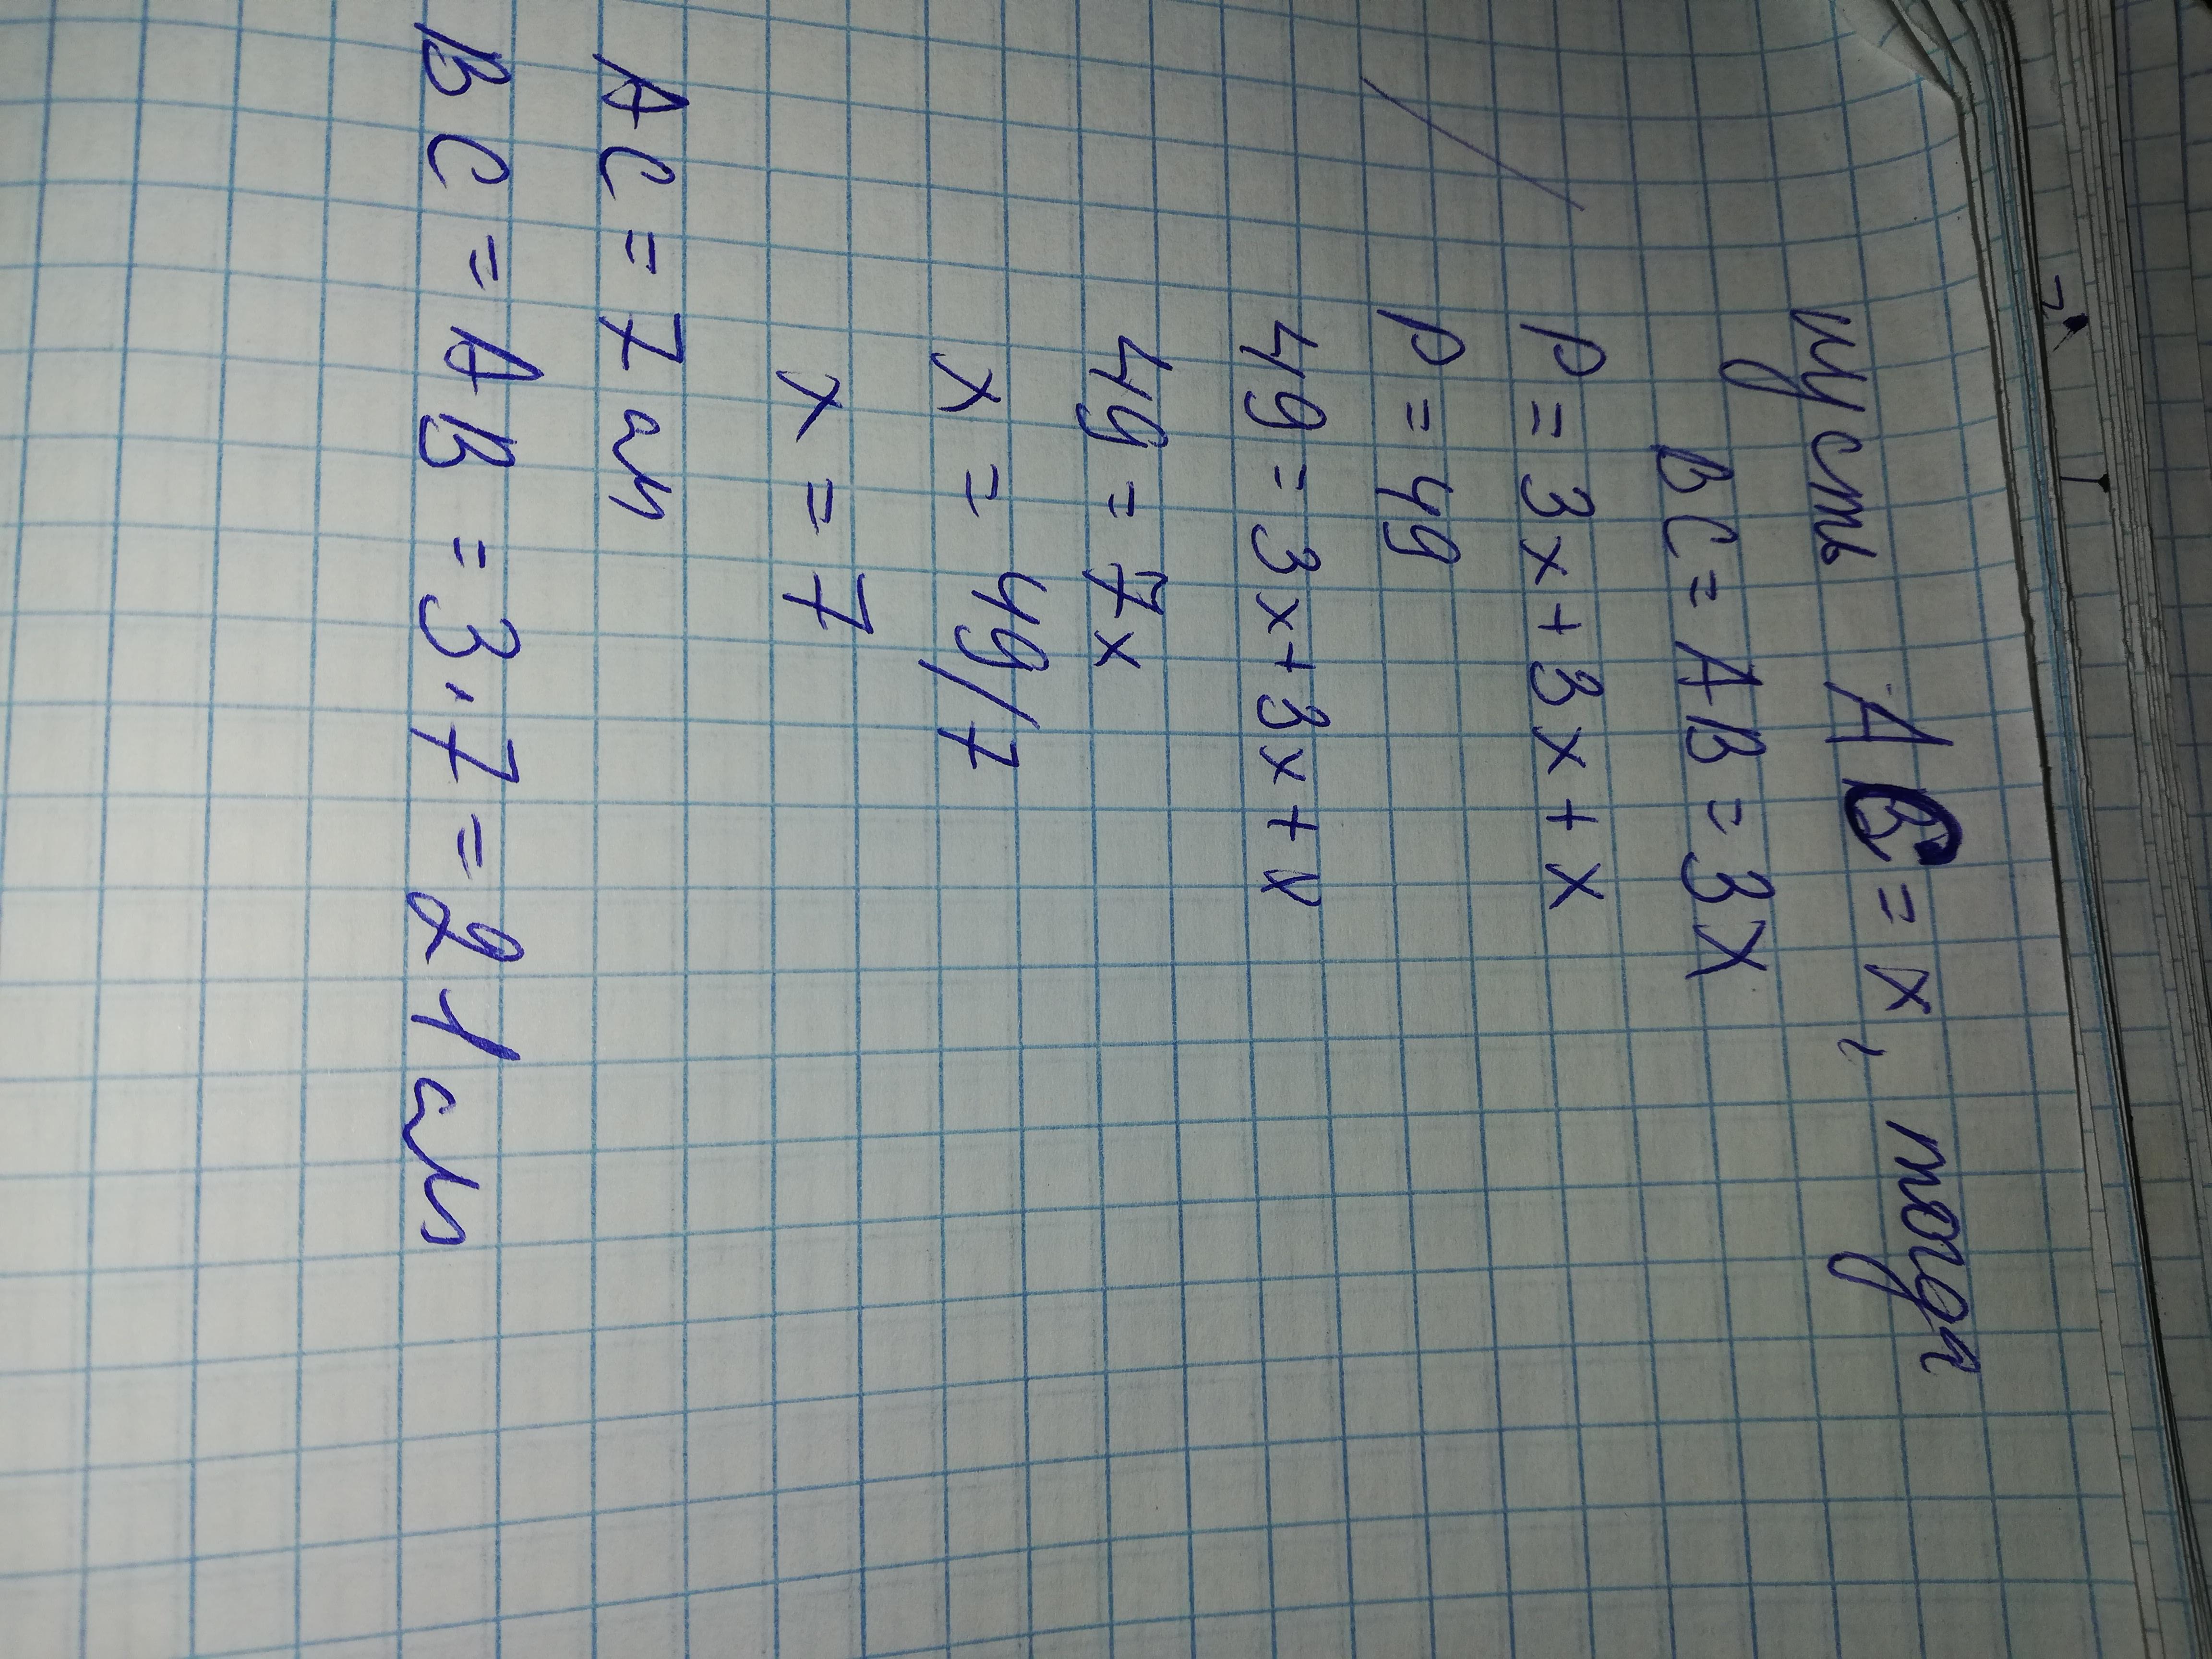 пусть AC = x, тогда
BC = AB = 3x
P = 3x + 3x + x
P = 49
49 = 3x + 3x + x
49 = 7x
x = 49/7
x = 7
AC = 7 см
BC = AB = 3 · 7 = 21 см